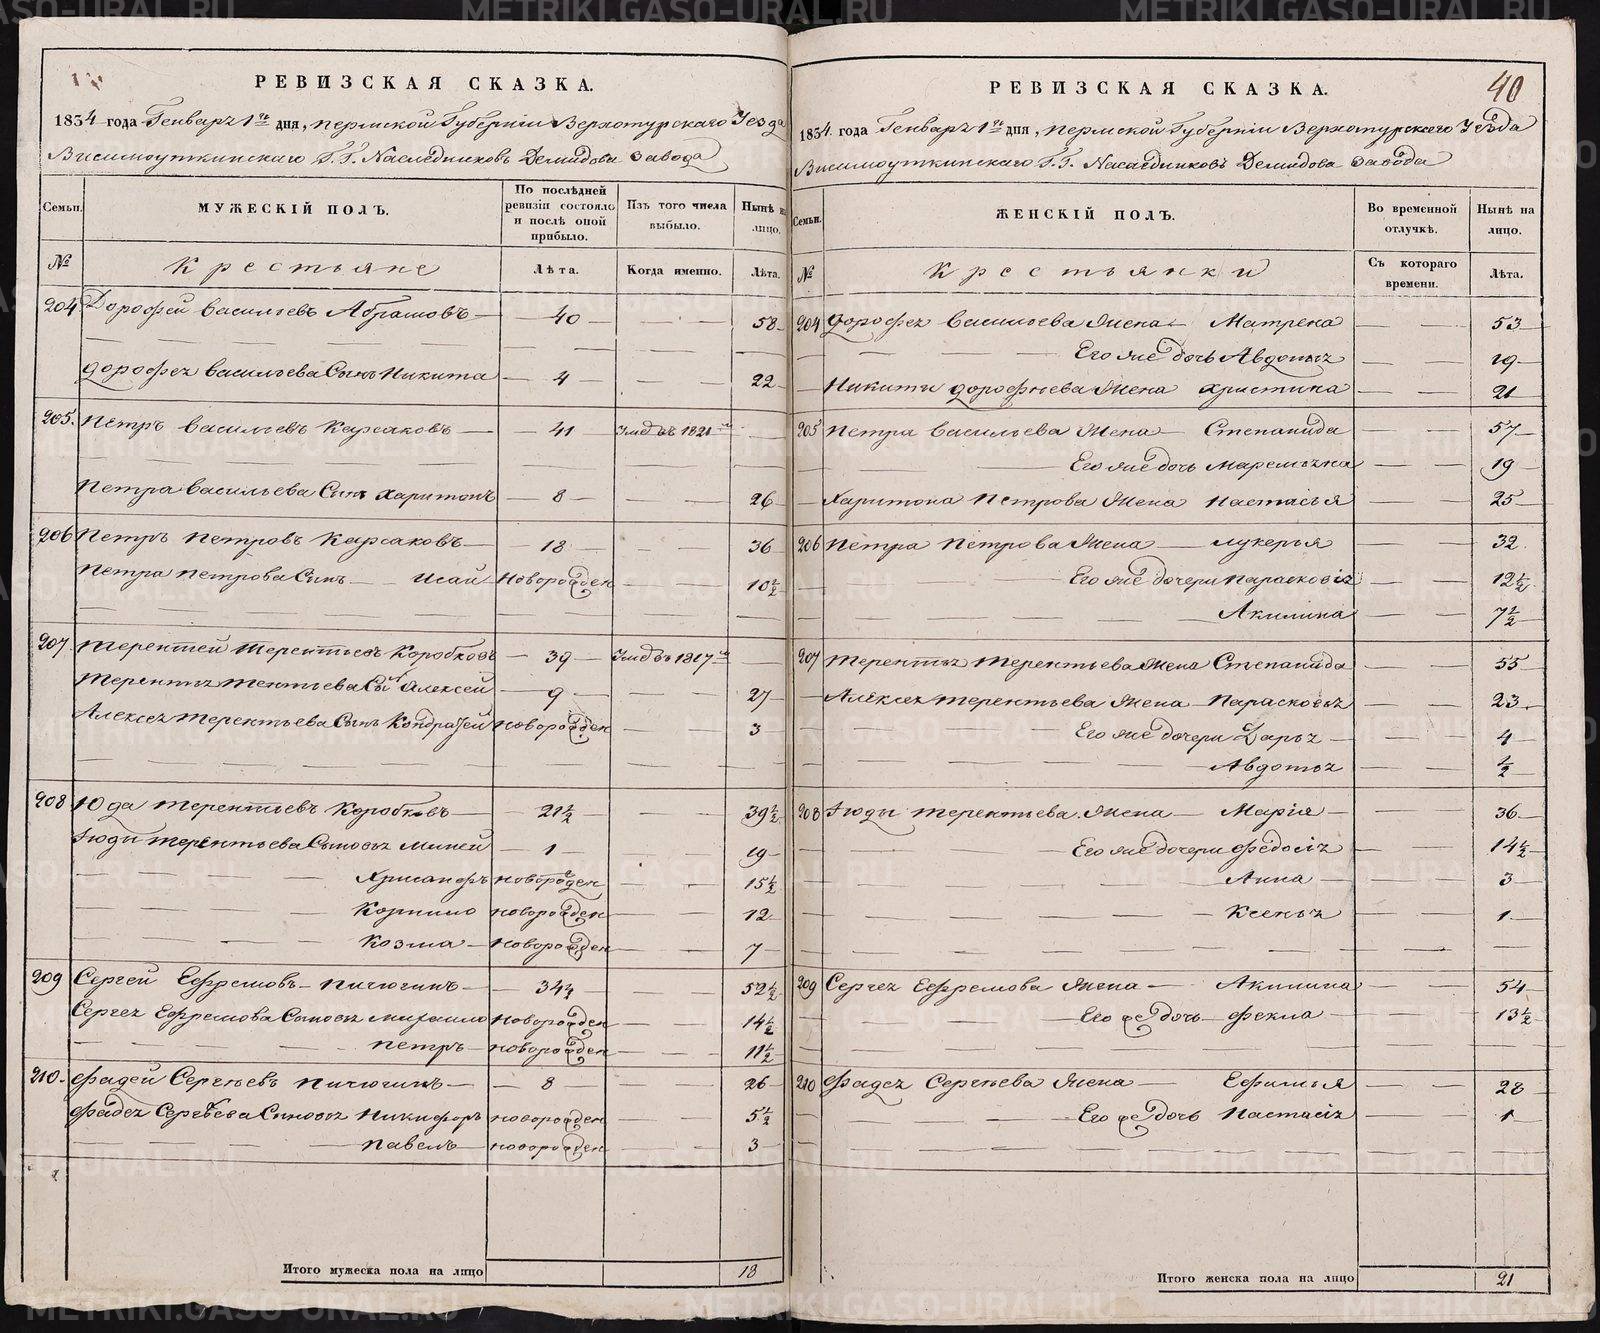 РЕВИЗСКАЯ СКАЗКА.
1834 года Генваря 1го дня, Пермской Губерніи Верхотурскаго Уезда
Висимоуткинскаго Г.Г. Наследниковъ Демидова завода
Семьи.
МУЖЕСКІЙ ПОЛЪ.
По послѣдней ревизіи состояло и послѣ оной прибыло.
Изъ того числа выбыло.
Нынѣ на лицо.
№
Крестьяне
Лѣта.
Когда именно.
Лѣта.
204 Дорофей Васильевъ Абрамовъ — 40 — — — 58
Дорофея Васильева Сынъ Никита — 4 — — — 22
205. Петръ Васильевъ Карсаковъ — 41 — Умѣ въ 1821 м
Петра Васильева Сынъ Харитонъ — 8 — — — 26
206 Петръ Петровъ Карсаковъ — 18 — — — 36
Петра Петрова Сынъ — Исай новорожден — — 10 1/2
207 Терентей Терентьевъ Коробковъ — 39 — Умѣ въ 1817 м
Терентья Тентьева Сынъ Алексей — 9 — — 27
Алексея Терентьева Сынъ Кондратей новорожден — 3
208 Юда Терентьевъ Коробковъ — 21 1/2 — — 39 1/2
Іюды Терентьева Сыновья Миней — 1 — — 19
Хрисанфъ новорожден — — 15 1/2
Корнило новорожден — — 12
Козма — новорожден — — 7
209 Сергей Ефремовъ — Пичюгинъ — 34 1/2 — — 52 1/2
Сергея Ефремова Сыновья Михаило новорожден — — 14 1/2
Петръ — новорожден — — 11 1/2
210. Фадей Сергѣевъ Пичюгинъ — 8 — — 26
Фадея Сергѣева Сыновья Никифоръ новорожден — 5 1/2
Павелъ — новорожден — — 3
Итого мужеска пола на лицо 18
40
РЕВИЗСКАЯ СКАЗКА.
1834. года Генваря 1го дня, Пермской Губерніи Верхотурскаго Уѣзда
Висимоуткинскаго Г.Г. Наследниковъ Демидова завода
Семьи.
ЖЕНСКІЙ ПОЛЪ.
Во временной отлучкѣ.
Нынѣ на лицо.
№
Крестьянки
Съ котораго времени.
Лѣта.
204 Дорофея Васильева Жена — Матрена — — 53
Его же дочь Авдотья — — 19
Никиты Дорофѣева Жена Христина — — 21
205 Петра Васильева Жена — Степанида — — 57
Его же дочь Маремьяна — — 19
Харитона Петрова Жена Настасья — — 25
206 Петра Петрова Жена — Лукерья — — 32
Его же дочери Парасковія — — 12 1/2
Акилина — — 7 1/2
207 Терентья Терентьева Жена Степанида — — 55
Алексея Терентьева Жена — Парасковья — — 23
Его же дочери Дарья — — 4
Авдотья — — 1/2
208 Іюды Терентьева Жена — Марія — — 36
Его же дочери Федосія — — 14 1/2
Анна — — 3
Ксенья — — 1
209 Сергея Ефремова Жена — Акилина — — 54
Его же дочь — Фекла — — 13 1/2
210 Фадея Сергѣева Жена — Ефимья — — 28
Его же дочь Настасія — — 1
Итого женска пола на лицо 21
METRIKI.GASO-URAL.RU